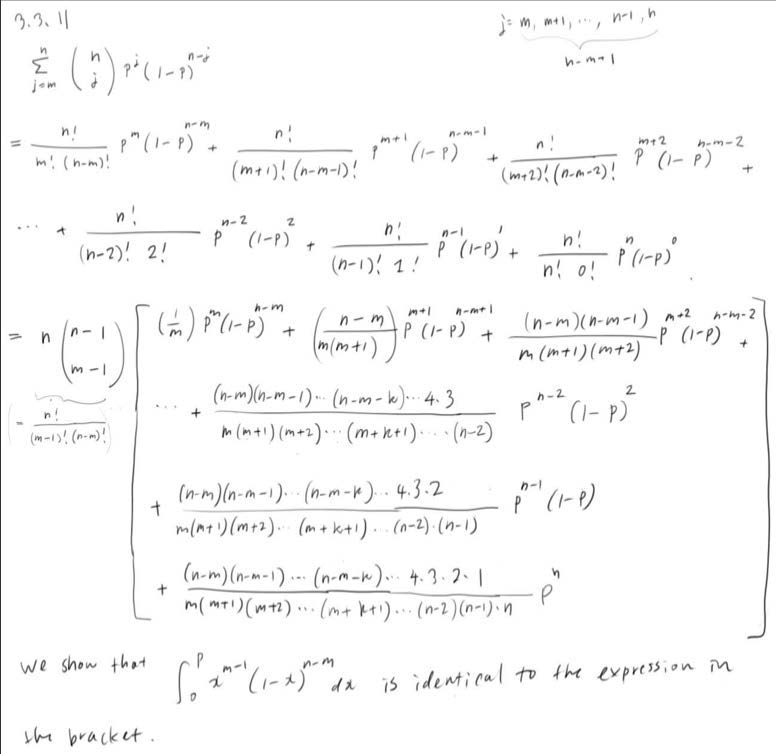 3.3.11
j = m, m+1, ..., n-1, n
n-m+1
\sum_{j=m}^{n} \binom{n}{j} p^{j} (1-p)^{n-j}
= \frac{n!}{m!(n-m)!} p^{m} (1-p)^{n-m} + \frac{n!}{(m+1)!(n-m-1)!} p^{m+1} (1-p)^{n-m-1} + \frac{n!}{(m+2)!(n-m-2)!} p^{m+2} (1-p)^{n-m-2} +
... + \frac{n!}{(n-2)! 2!} p^{n-2} (1-p)^{2} + \frac{n!}{(n-1)! 1!} p^{n-1} (1-p)^{1} + \frac{n!}{n! 0!} p^{n} (1-p)^{0}.
= n \binom{n-1}{m-1} [ (\frac{1}{m}) p^{m} (1-p)^{n-m} + (\frac{n-m}{m(m+1)}) p^{m+1} (1-p)^{n-m+1} + \frac{(n-m)(n-m-1)}{m(m+1)(m+2)} p^{m+2} (1-p)^{n-m-2} +
(= \frac{n!}{(m-1)!(n-m)!})
... + \frac{(n-m)(n-m-1)...(n-m-k)...4.3}{m(m+1)(m+2)...(m+k+1)....(n-2)} p^{n-2} (1-p)^{2}
+ \frac{(n-m)(n-m-1)...(n-m-k)...4.3.2}{m(m+1)(m+2)...(m+k+1)...(n-2).(n-1)} p^{n-1} (1-p)
+ \frac{(n-m)(n-m-1)...(n-m-k)...4.3.2.1}{m(m+1)(m+2)...(m+k+1)...(n-2)(n-1).n} p^{n} ]
We show that \int_{0}^{p} x^{m-1} (1-x)^{n-m} dx is identical to the expression in
the bracket.